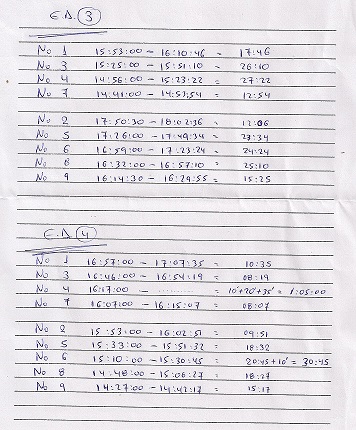 Ε.Δ. 3
No 1 15:53:00 - 16:10:46 = 17:46
No 3 15:25:00 - 15:51:10 = 26:10
No 4 14:56:00 - 15:23:22 = 27:22
No 7 14:41:00 - 14:53:54 = 12:54
No 2 17:50:30 - 18:02:36 = 12:06
No 5 17:26:00 - 17:49:34 = 23:34
No 6 16:59:00 - 17:23:24 = 24:24
No 8 16:32:00 - 16:57:10 = 25:10
No 9 16:14:30 - 16:29:55 = 15:25
Ε.Δ. 4
No 1 16:57:00 - 17:07:35 = 10:35
No 3 16:46:00 - 16:54:19 = 08:19
No 4 16:17:00 - .......... = 10'+20'+35' = 1:05:00
No 7 16:07:00 - 16:15:07 = 08:07
No 2 15:53:00 - 16:02:51 = 09:51
No 5 15:33:00 - 15:51:32 = 18:32
No 6 15:10:00 - 15:30:45 = 20:45+10' = 30:45
No 8 14:48:00 - 15:06:27 = 18:27
No 9 14:27:00 - 14:42:17 = 15:17